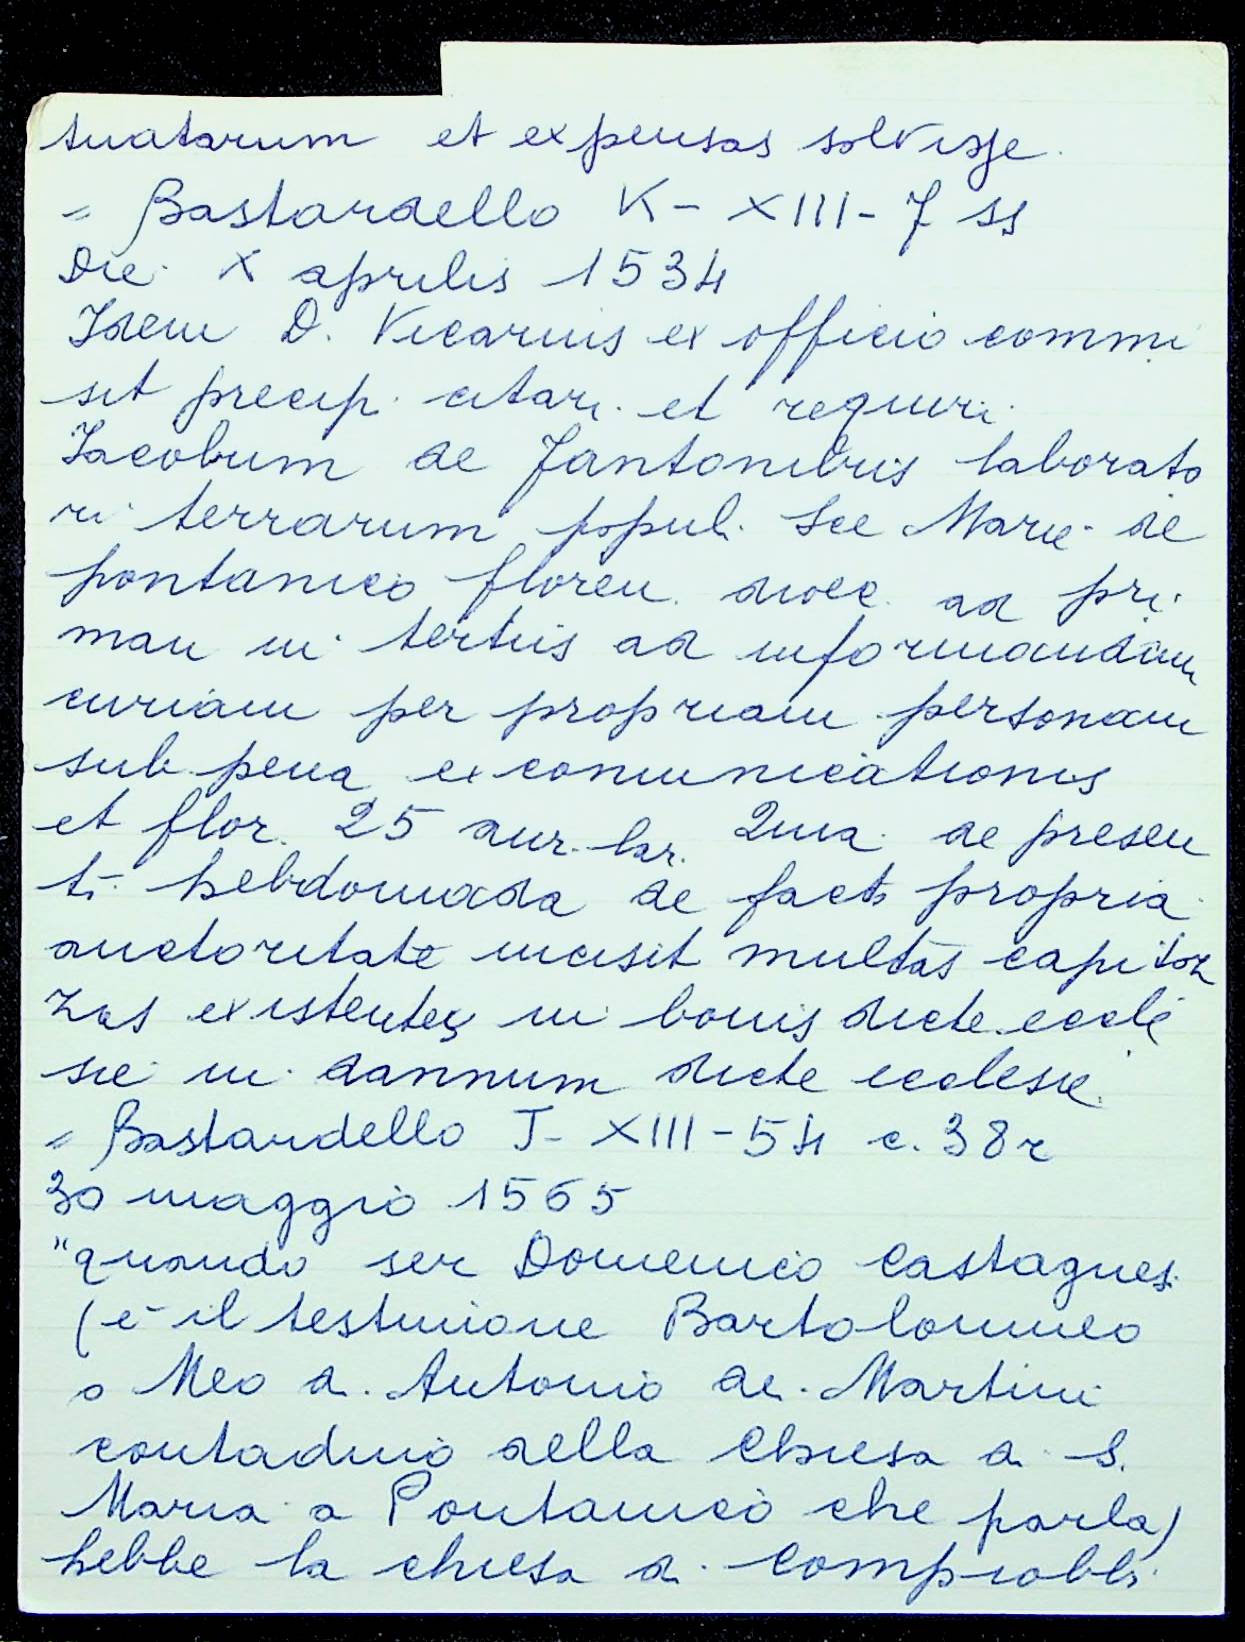 tuatarum et expensas solvisse.
= Bastardello K - XIII - 7 ss
Die X aprilis 1534
Idem D. Vicarius ex officio commi
sit precip. citari et requiri
Iacobum de Fantonibus laborato
ri terrarum popul. Sce Marie de
pontanico floren. dioec. ad pri
mam in tertiis ad informandam
curiam per propriam personam
sub pena excomunicationis
et flor. 25 aur. lar. Quia de presen
ti hebdomada de facto propria
auctoritate incisit multas capitoz
zas existentes in bonis dicte eccle
sie in dannum dicte ecclesie.
= Bastardello J - XIII - 54 c. 38r
30 maggio 1565
"quando ser Domenico Castagnesi
(è il testimone Bartolommeo
o Meo di Antonio de Martini
contadino della Chiesa di S.
Maria a Pontanico che parla)
hebbe la chiesa di Compiobbi